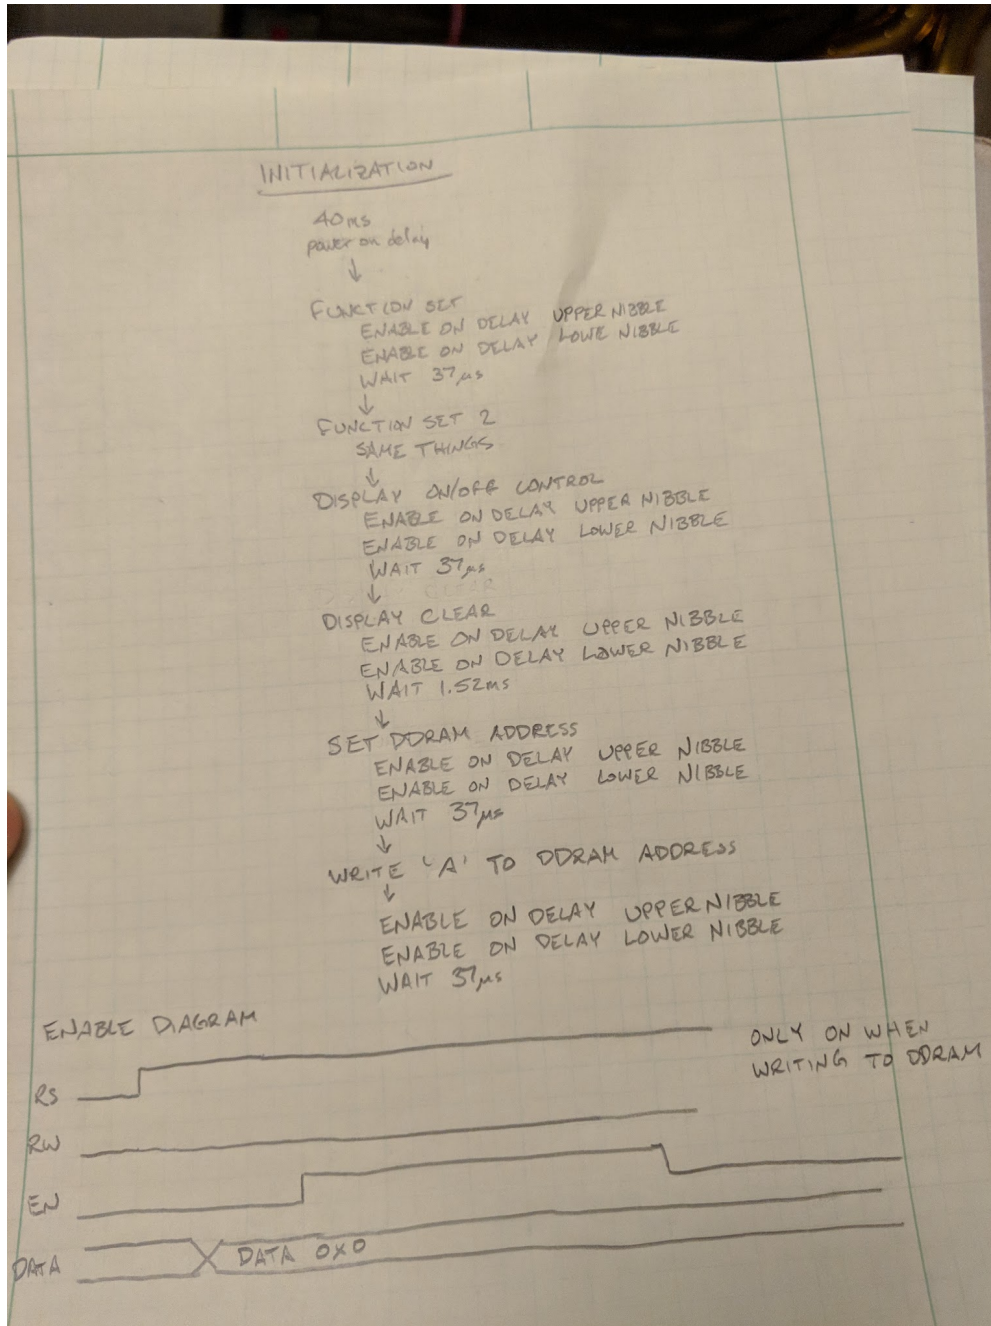 INITIALIZATION
40ms
power on delay
↓
FUNCTION SET
ENABLE ON DELAY UPPER NIBBLE
ENABLE ON DELAY LOWE NIBBLE
WAIT 37μs
↓
FUNCTION SET 2
SAME THINGS
↓
DISPLAY ON/OFF CONTROL
ENABLE ON DELAY UPPER NIBBLE
ENABLE ON DELAY LOWER NIBBLE
WAIT 37μs
↓
DISPLAY CLEAR
ENABLE ON DELAY UPPER NIBBLE
ENABLE ON DELAY LOWER NIBBLE
WAIT 1.52ms
↓
SET DDRAM ADDRESS
ENABLE ON DELAY UPPER NIBBLE
ENABLE ON DELAY LOWER NIBBLE
WAIT 37μs
↓
WRITE 'A' TO DDRAM ADDRESS
↓
ENABLE ON DELAY UPPER NIBBLE
ENABLE ON DELAY LOWER NIBBLE
WAIT 37μs
ENABLE DIAGRAM
ONLY ON WHEN
WRITING TO DDRAM
RS
RW
EN
DATA DATA 0X0